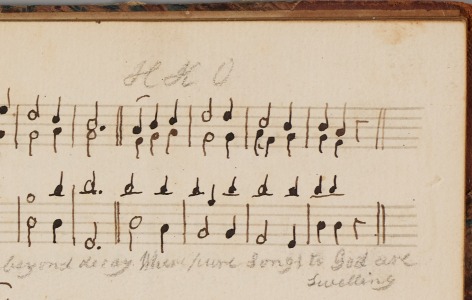 H K O
beyond decay Where pure Songs to God are
Swelling